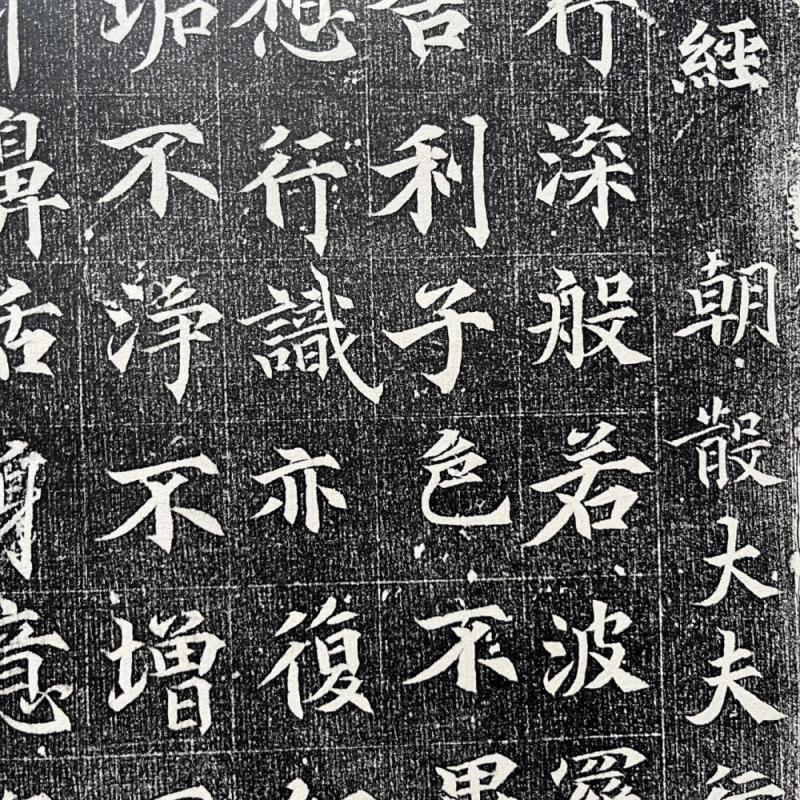 經 朝散大夫行
行深般若波羅
舍利子色不異
想行識亦復如
垢不淨不增不
鼻舌身意